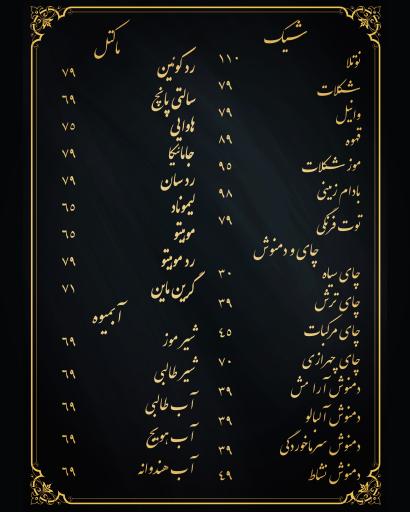 شیک
نوتلا ۱۱۰
شکلات ۷۹
وانیل ۷۹
قهوه ۸۹
موز شکلات ۹۵
بادام زمینی ۹۸
توت فرنگی ۷۹
چای و دمنوش
چای سیاه ۳۰
چای ترش ۳۹
چای مرکبات ٤۵
چای چهرازی ۷۰
دمنوش آرامش ۳۹
دمنوش آلبالو ۳۹
دمنوش سرماخوردگی ۳۹
دمنوش نشاط ٤۹
ماکتل
رد کوئین ۷۹
سالتی پانچ ٦۹
هاوایی ۷۵
جامائیکا ۷۹
رد سان ۷۹
لیموناد ٦۵
موهیتو ٦۵
رد موهیتو ۷۹
گرین ماین ۷۱
آبمیوه
شیر موز ٦۹
شیر طالبی ٦۹
آب طالبی ٦۹
آب هویج ٦۹
آب هندوانه ٦۹